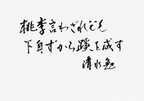 桃李言わざれども
下自ずから蹊を成す
清水勉